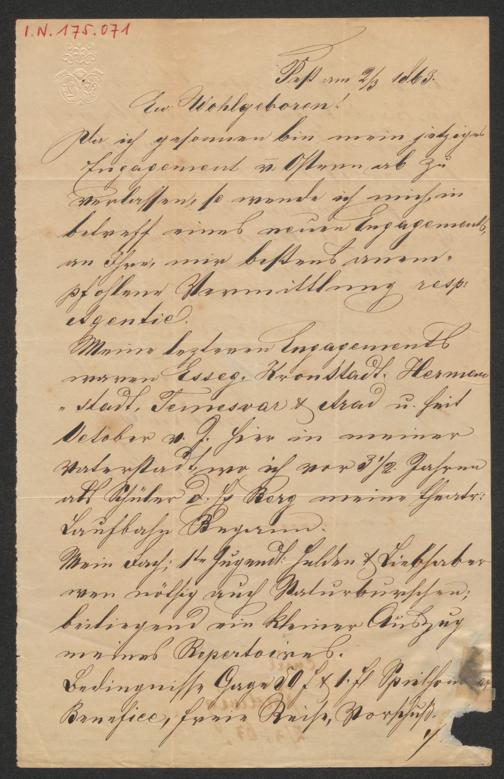 I.N. 175.071
Pest am 2/3 1863.
Eu Wohlgeboren!
Da ich gesonnen bin mein jetziges
Engagement v. Ostern ab zu
verlassen, so wende ich mich, in
betreff eines neuen Engagements,
an Ihre, mir bestens anem-
pfohlene Vermittlung resp:
Agentie.
Meine letzteren Engagements
waren Esseg, Kronstadt, Herman-
-stadt, Temesvar & Arad u. seit
October v. J. hier in meiner
Vaterstadt, wo ich vor 3 1/2 Jahren
als Schüler d. H Berg meine theatr:
Laufbahn Begann.
Mein Fach; 1te Jugendl: Helden & Liebhaber
wen nöthig auch Naturburschen;
beiliegend ein kleiner Auszug
meines Repertoires.
Bedingnisse Gage 90 f & 1. fl Spielhon
Benefice, freie Reise, Vorschuß.